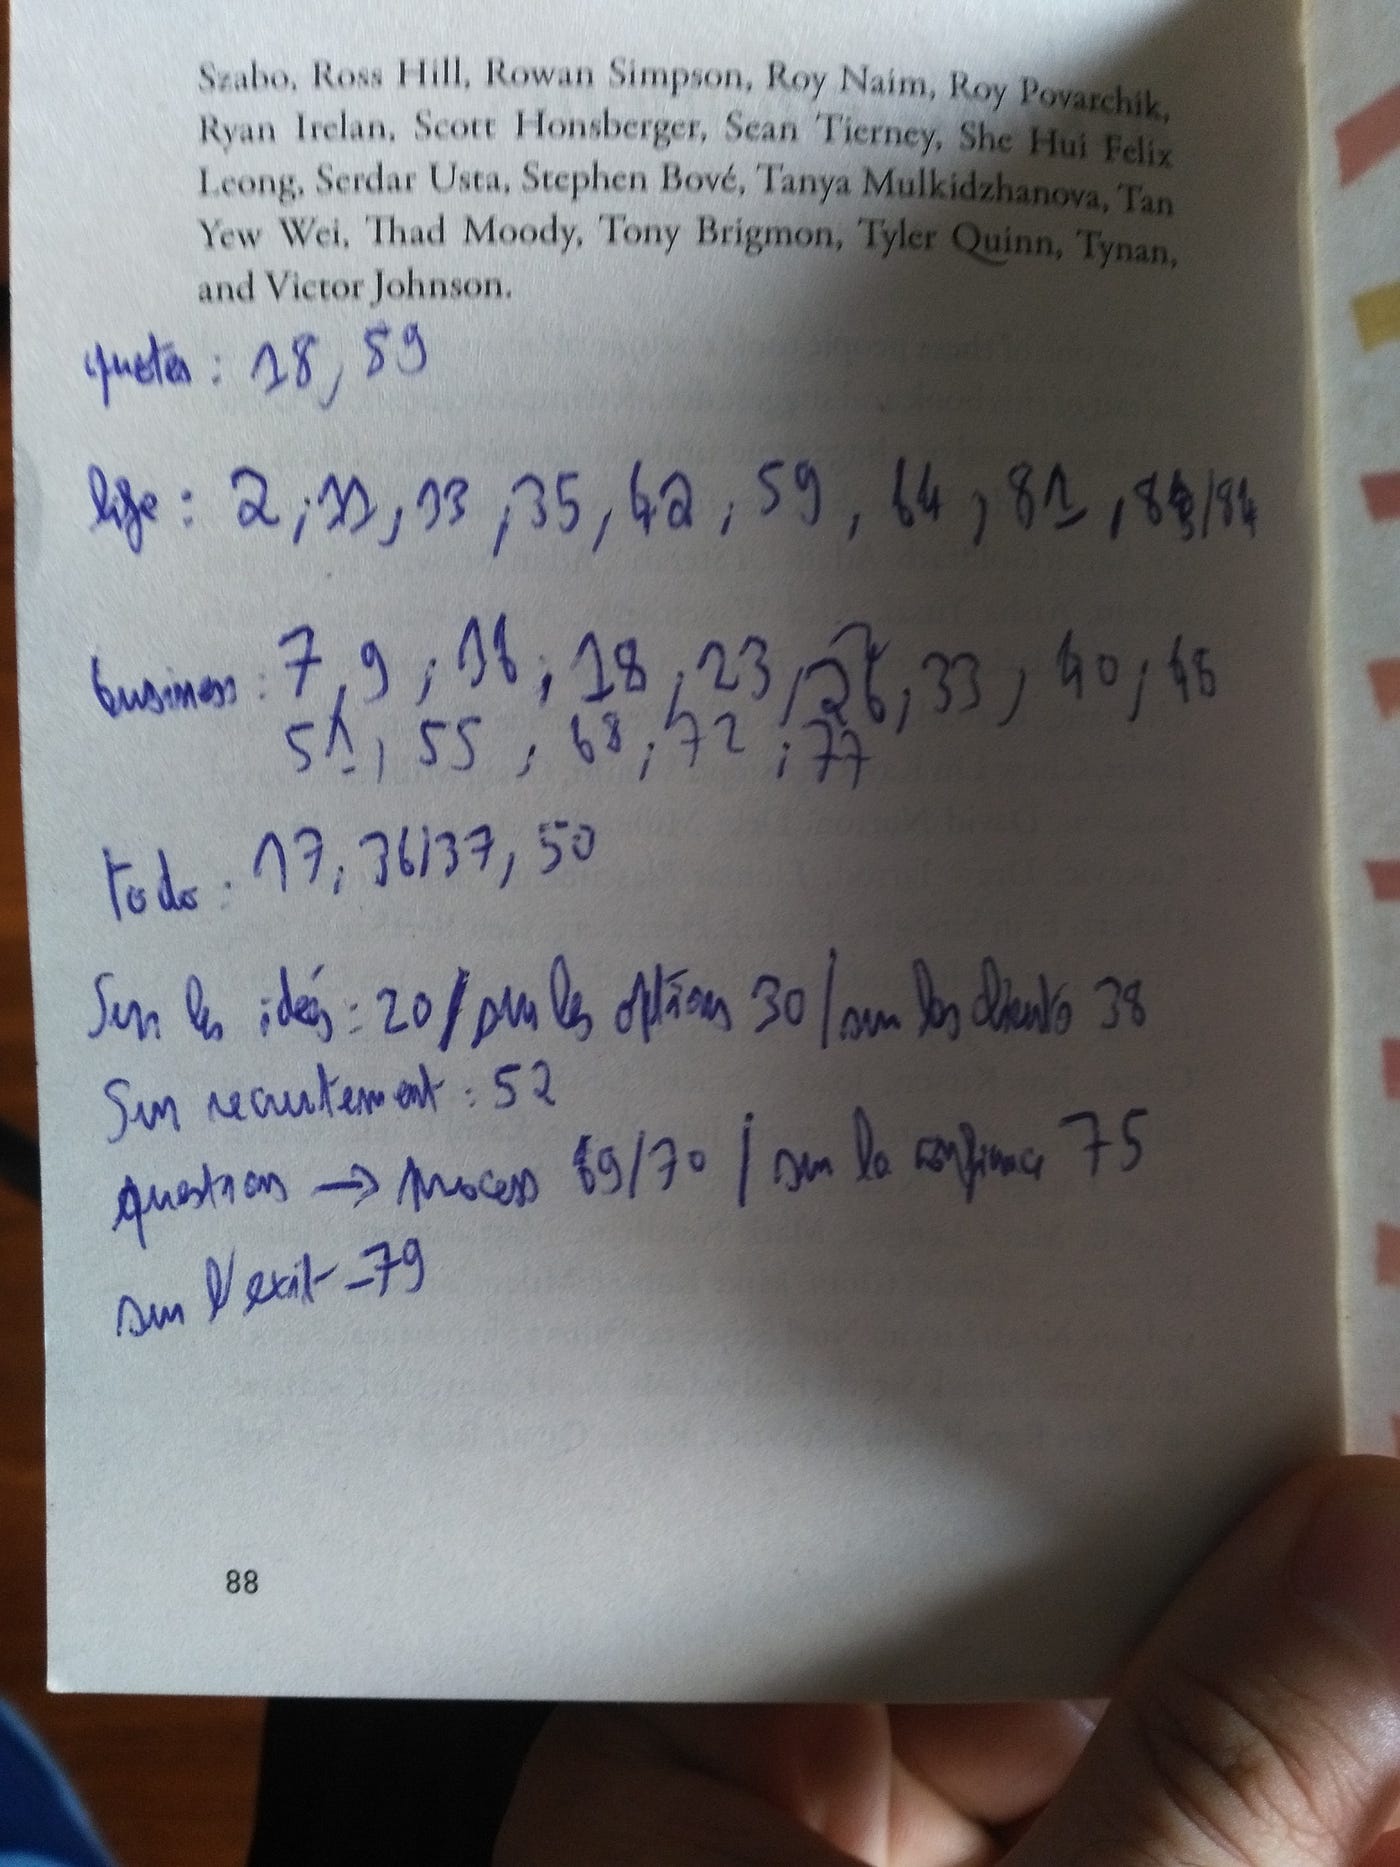 Szabo, Ross Hill, Rowan Simpson, Roy Naim, Roy Povarchik,
Ryan Irelan, Scott Honsberger, Sean Tierney, She Hui Felix
Leong, Serdar Usta, Stephen Bové, Tanya Mulkidzhanova, Tan
Yew Wei, Thad Moody, Tony Brigmon, Tyler Quinn, Tynan,
and Victor Johnson.
quotes : 18, 59
life : 2, 11, 13, 35, 42, 59, 64, 81, /84
business : 7, 9, 16, 18, 23, 26, 33, 40, 46
51, 55, 68, 72, 77
todo : 17, 36/37, 50
Sur les idées : 20 / sur les options 30 / sur les clients 38
Sur recrutement : 52
questions → process 69/70 / sur la confiance 75
sur l'exit - 79
88